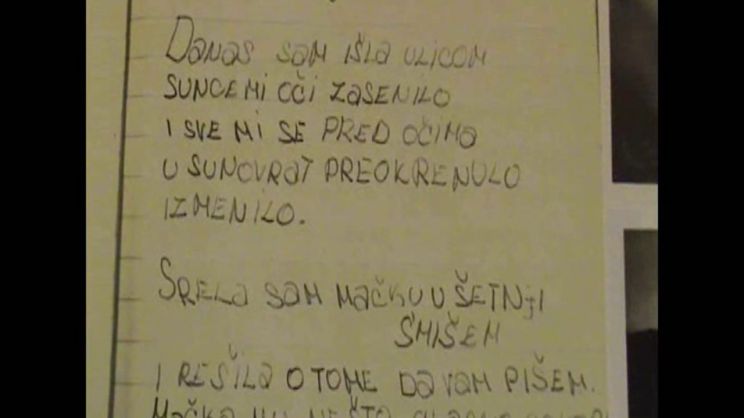 Danas sam išla ulicom
sunce mi oči zasenilo
i sve mi se pred očima
u sunovrat preokrenulo
izmenilo.
Srela sam mačku u šetnji
s mišem
i rešila o tome da vam pišem.
Mačka mu nešto